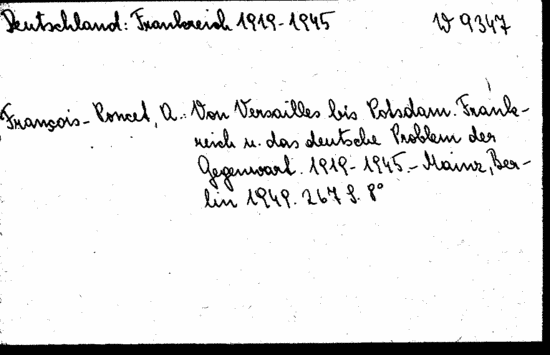 Deutschland: Frankreich 1919-1945 W 9347
François-Poncet, A.: Von Versailles bis Potsdam. Frank-
reich u. das deutsche Problem der
Gegenwart. 1919-1945.- Mainz, Ber-
lin 1949. 267 S. 8°